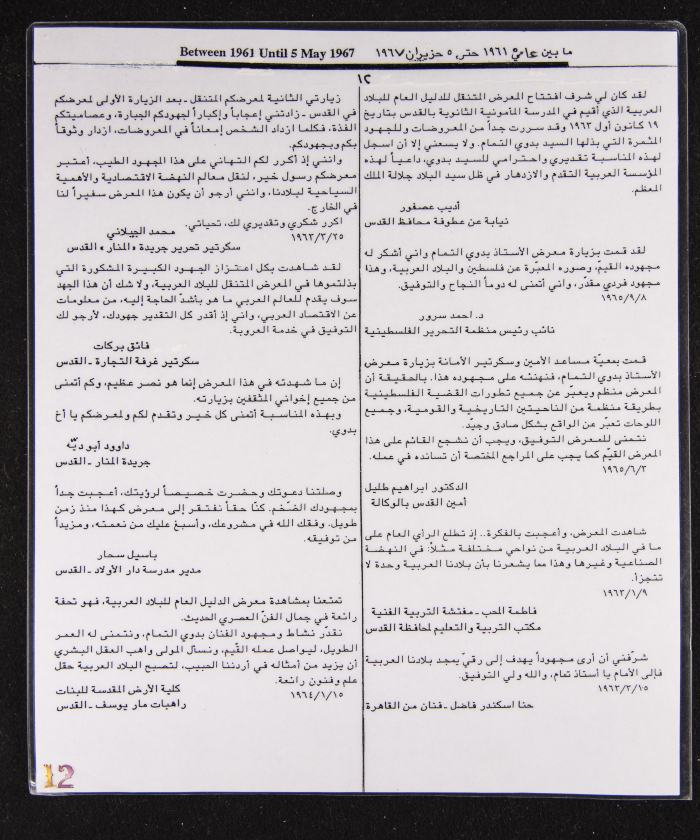 Between 1961 Until 5 May 1967 ما بين عامي ١٩٦١ حتى ٥ حزيران ١٩٦٧
١٢
لقد كان لي شرف افتتاح المعرض المتنقل للدليل العام للبلاد
العربية الذي أقيم في المدرسة المأمونية الثانوية بالقدس بتاريخ
١٩ كانون أول ١٩٦٣ وقد سررت جداً من المعروضات وللجهود
المثمرة التي بذلها السيد بدوي التمام. ولا يسعني إلا أن اسجل
لهذه المناسبة تقديري واحترامي للسيد بدوي، داعياً لهذه
المؤسسة العربية التقدم والازدهار في ظل سيد البلاد جلالة الملك
المعظم.
أديب عصفور
نيابة عن عطوفة محافظ القدس
لقد قمت بزيارة معرض الأستاذ بدوي التمام واني أشكر له
مجهوده القيم، وصوره المعبّرة عن فلسطين والبلاد العربية، وهذا
مجهود فردي مقدّر، واني أتمنى له دوماً النجاح والتوفيق.
١٩٦٥/٩/٨
د. احمد سرور
نائب رئيس منظمة التحرير الفلسطينية
قمت بمعيّة مساعد الأمين وسكرتير الأمانة بزيارة معرض
الأستاذ بدوي التمام، فنهنئه على مجهوده هذا. بالحقيقة أن
المعرض منظم ويعبّر عن جميع تطورات القضية الفلسطينية
بطريقة منظمة من الناحيتين التاريخية والقومية، وجميع
اللوحات تعبّر عن الواقع بشكل صادق وجيّد.
نتمنى للمعرض التوفيق، ويجب أن نشجع القائم على هذا
المعرض القيّم كما يجب على المراجع المختصة أن تسانده في عمله.
١٩٦٥/٦/٣
الدكتور ابراهيم طليل
أمين القدس بالوكالة
شاهدت المعرض، وأعجبت بالفكرة.. إذ تطلع الرأي العام على
ما في البلاد العربية من نواحي مختلفة مثلاً: في النهضة
الصناعية وغيرها وهذا مما يشعرنا بأن بلادنا العربية وحدة لا
تتجزأ.
١٩٦٣/١/٩
فاطمة المحب - مفتشة التربية الفنية
مكتب التربية والتعليم لمحافظة القدس
شرّفني أن أرى مجهوداً يهدف إلى رقيّ يمجد بلادنا العربية
فإلى الأمام يا أستاذ تمام، والله ولي التوفيق.
١٩٦٣/٣/١٥
حنا اسكندر فاضل - فنان من القاهرة
زيارتي الثانية لمعرضكم المتنقل - بعد الزيارة الأولى لمعرضكم
في القدس - زادتني إعجاباً وإكباراً لجهودكم الجبارة، وعصاميتكم
الفذة، فكلما ازداد الشخص إمعاناً في المعروضات، ازداد وثوقاً
بكم وبجهودكم.
وانني إذ أكرر لكم التهاني على هذا المجهود الطيب، أعتبر
معرضكم رسول خير، لنقل معالم النهضة الاقتصادية والأهمية
السياحية لبلادنا، وانني أرجو أن يكون هذا المعرض سفيراً لنا
في الخارج.
اكرر شكري وتقديري لك، تحياتي.
١٩٦٣/٣/٢٥ محمد الجيلاني
سكرتير تحرير جريدة «المنار» القدس
لقد شاهدت بكل اعتزاز الجهود الكبيرة المشكورة التي
بذلتموها في المعرض المتنقل للبلاد العربية، ولا شك أن هذا الجهد
سوف يقدم للعالم العربي ما هو بأشدّ الحاجة إليه، من معلومات
عن الاقتصاد العربي، واني إذ أقدر كل التقدير جهودك، لأرجو لك
التوفيق في خدمة العروبة.
فائق بركات
سكرتير غرفة التجارة - القدس
إن ما شهدته في هذا المعرض إنما هو نصر عظيم، وكم أتمنى
من جميع إخواني المثقفين بزيارته.
وبهذه المناسبة أتمنى كل خير وتقدم لكم ولمعرضكم يا أخ
بدوي.
داوود أبو ديّه
جريدة المنار - القدس
وصلتنا دعوتك وحضرت خصيصاً لرؤيتك، أعجبت جداً
بمجهودك الضخم. كنّا حقاً نفتقر إلى معرض كهذا منذ زمن
طويل. وفقك الله في مشروعك، وأسبغ عليك من نعمته، ومزيداً
من توفيقه.
باسيل سحار
مدير مدرسة دار الأولاد - القدس
تمتعنا بمشاهدة معرض الدليل العام للبلاد العربية، فهو تحفة
رائعة في جمال الفنّ العصري الحديث.
نقدّر نشاط ومجهود الفنان بدوي التمام، ونتمنى له العمر
الطويل، ليواصل عمله القيّم، ونسأل المولى واهب العقل البشري
أن يزيد من أمثاله في أردننا الحبيب، لتصبح البلاد العربية حقل
علم وفنون رائعة.
١٩٦٤/١/١٥ كلية الأرض المقدسة للبنات
راهبات مار يوسف - القدس
12